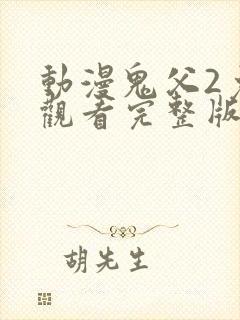 動漫鬼父2
觀看完整版
胡先生